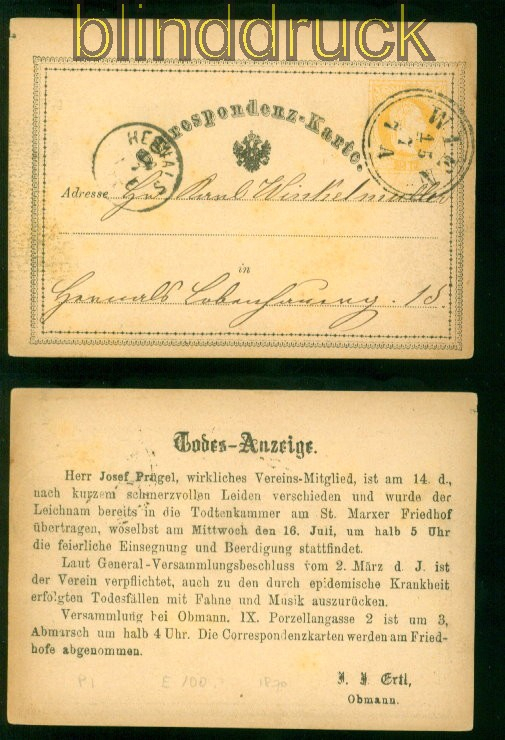 blinddruck
Correspondenz-Karte.
WIEN
15
7
A
HERNALS
Adresse Hr Karl Winkelmüller
in
Hernals Lobenhauerng. 15.
Todes-Anzeige.
Herr Josef Prügel, wirkliches Vereins-Mitglied, ist am 14. d.,
nach kurzem schmerzvollen Leiden verschieden und wurde der
Leichnam bereits in die Todtenkammer am St. Marxer Friedhof
übertragen, woselbst am Mittwoch den 16. Juli, um halb 5 Uhr
die feierliche Einsegnung und Beerdigung stattfindet.
Laut General-Versammlungsbeschluss vom 2. März d. J. ist
der Verein verpflichtet, auch zu den durch epidemische Krankheit
erfolgten Todesfällen mit Fahne und Musik auszurücken.
Versammlung bei Obmann. IX. Porzellangasse 2 ist um 3,
Abmarsch um halb 4 Uhr. Die Correspondenzkarten werden am Fried-
hofe abgenommen.
J. J. Ertl,
Obmann.
P1 E 100.- 1870